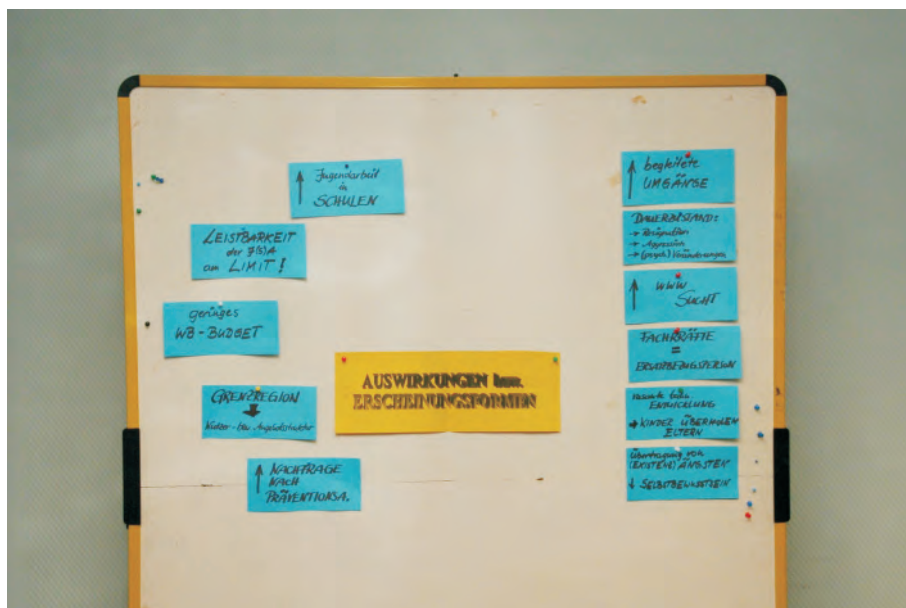 ↑ Jugendarbeit
in
SCHULEN
LEISTBARKEIT
der
am LIMIT!
geringes
WB-BUDGET
GRENZREGION
↑ NACHFRAGE
NACH
PRÄVENTIONSA.
AUSWIRKUNGEN bzw.
ERSCHEINUNGSFORMEN
↑ begleitete
UMGÄNGE
DAUERBESTAND:
→ Resignation
→ Aggression
→ (psych) Veränderungen
↑ WWW
SUCHT
FACHKRÄFTE
=
ERSATZBEZUGSPERSON
ENTWICKLUNG
→ KINDER ÜBERHOLEN
ELTERN
Übertragung von
(EXISTENZ) ÄNGSTEN
↓ SELBSTBEWUSSTSEIN